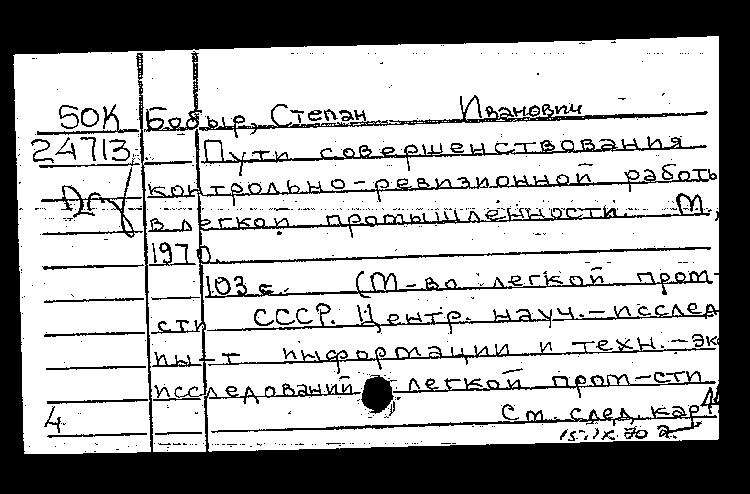 50К Бобыр, Степан Иванович
24713 Пути совершенствования
контрольно-ревизионной работы
в легкой промышленности. М.,
1970.
103 с. (М-во легкой пром-
сти СССР. Центр. науч.-исслед
ин-т информации и техн.-эк
исследований легкой пром-сти
4 См. след. кар